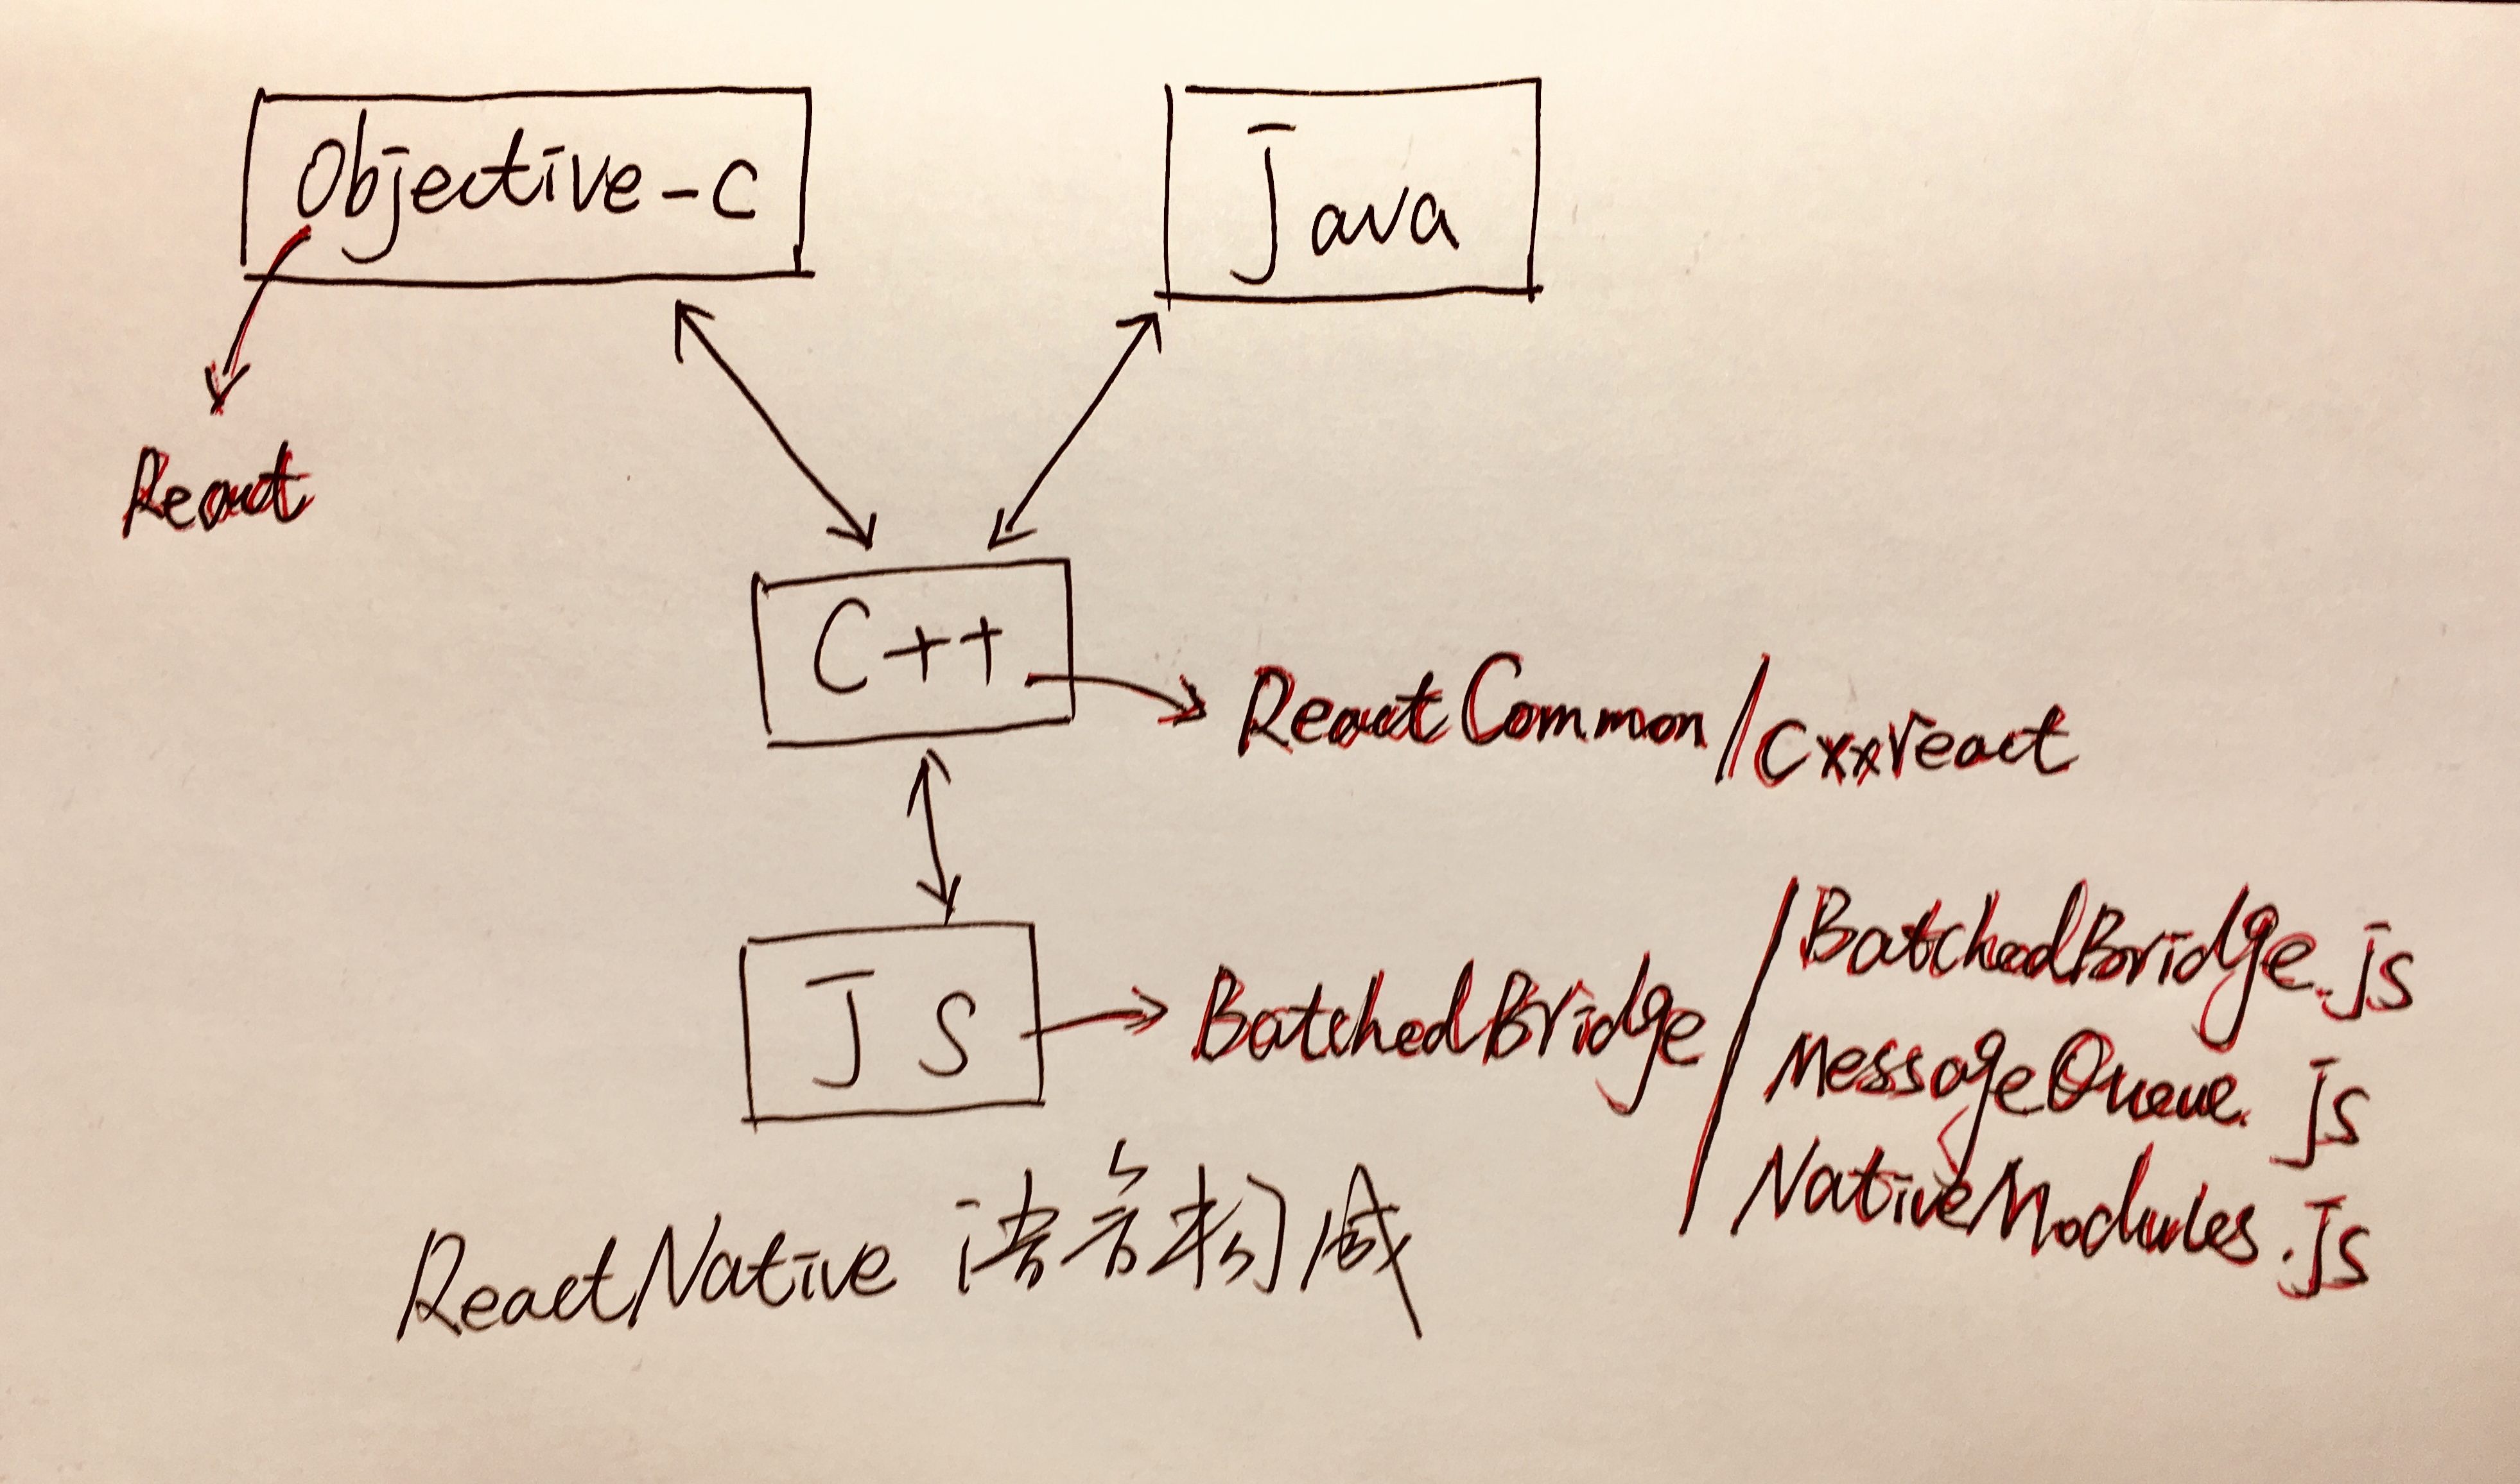 Objective-C
Java
React
C++
ReactCommon/cxxreact
JS
BatchedBridge/
BatchedBridge.js
MessageQueue.js
NativeModules.js
ReactNative 语言构成